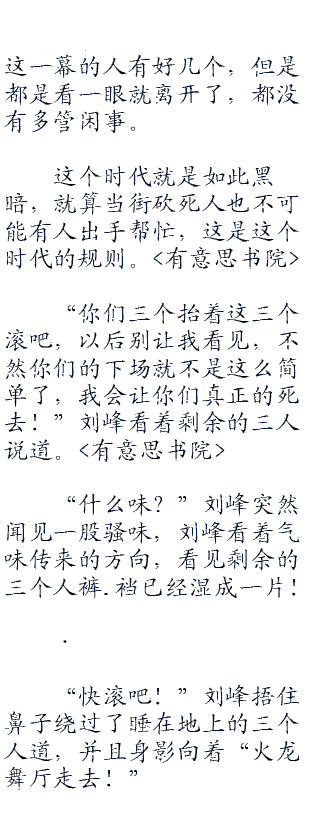 这一幕的人有好几个，但是
都是看一眼就离开了，都没
有多管闲事。
这个时代就是如此黑
暗，就算当街砍死人也不可
能有人出手帮忙，这是这个
时代的规则。<有意思书院>
“你们三个抬着这三个
滚吧，以后别让我看见，不
然你们的下场就不是这么简
单了，我会让你们真正的死
去！”刘峰看着剩余的三人
说道。<有意思书院>
“什么味？”刘峰突然
闻见一股骚味，刘峰看着气
味传来的方向，看见剩余的
三个人裤.裆已经湿成一片！
.
“快滚吧！”刘峰捂住
鼻子绕过了睡在地上的三个
人道，并且身影向着“火龙
舞厅走去！”